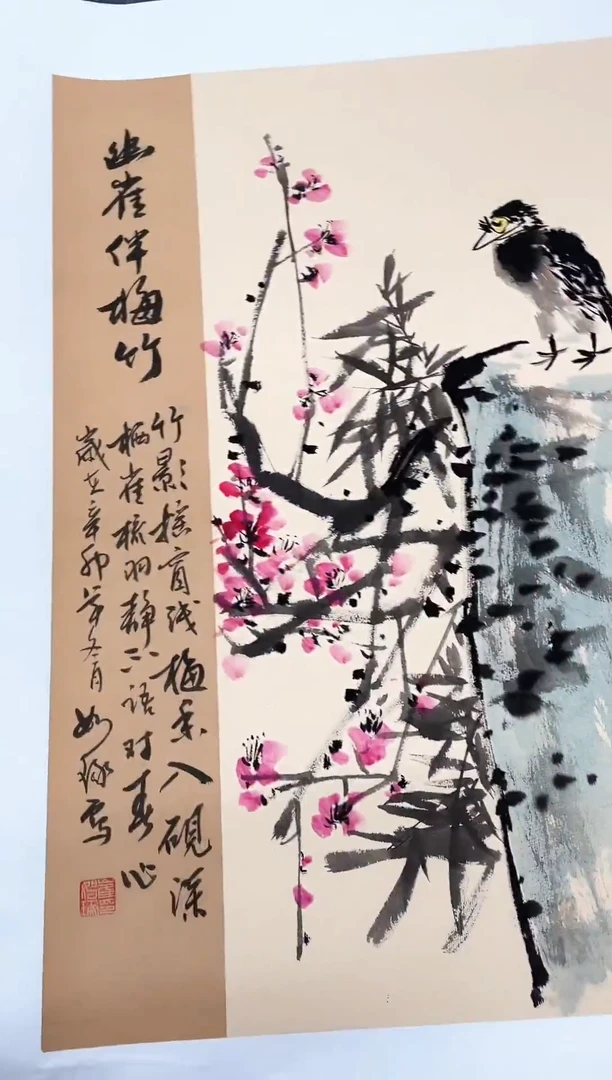 幽雀伴梅竹
竹影摇窗浅梅香入砚深
栖雀梳羽静不语对春心
岁在辛卯年冬月如琢写